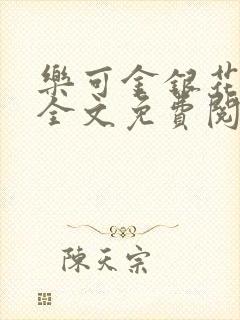 樂可金銀花
全文免費閱
陳天宗